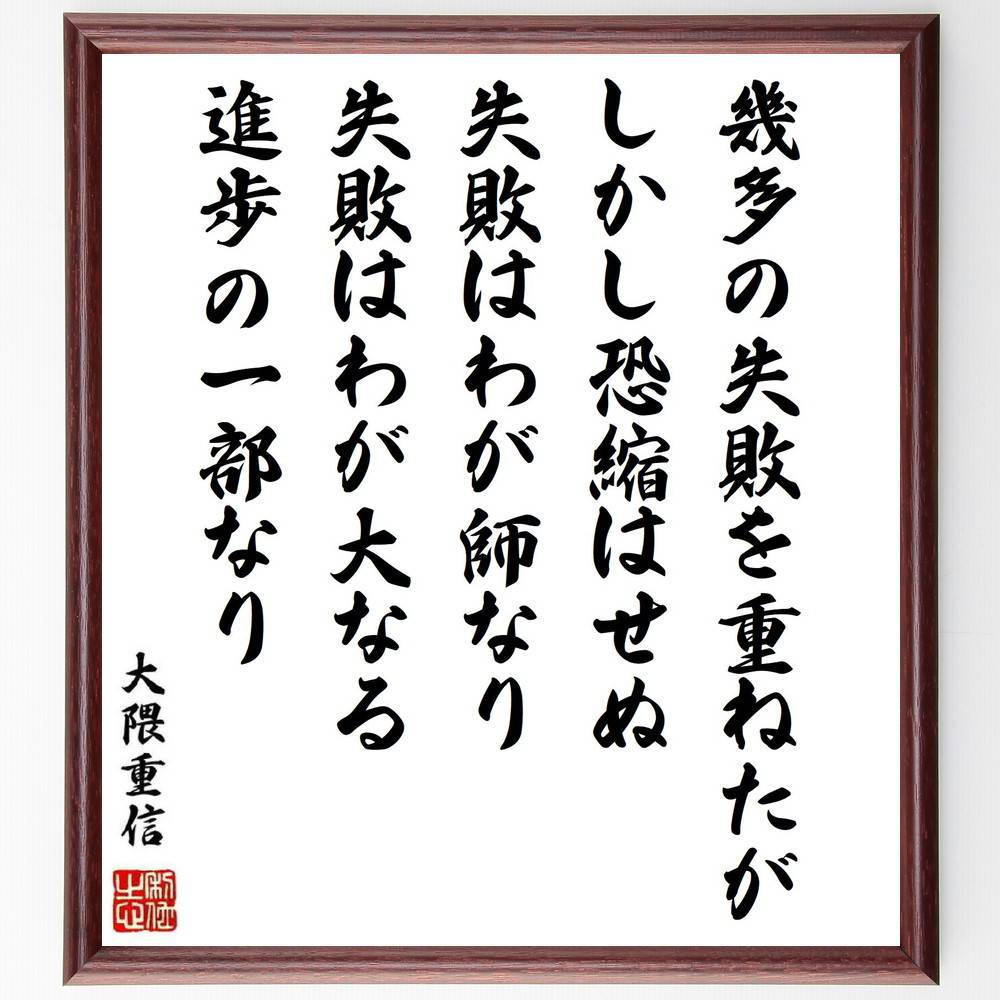 幾多の失敗を重ねたが
しかし恐縮はせぬ
失敗はわが師なり
失敗はわが大なる
進歩の一部なり
大隈重信